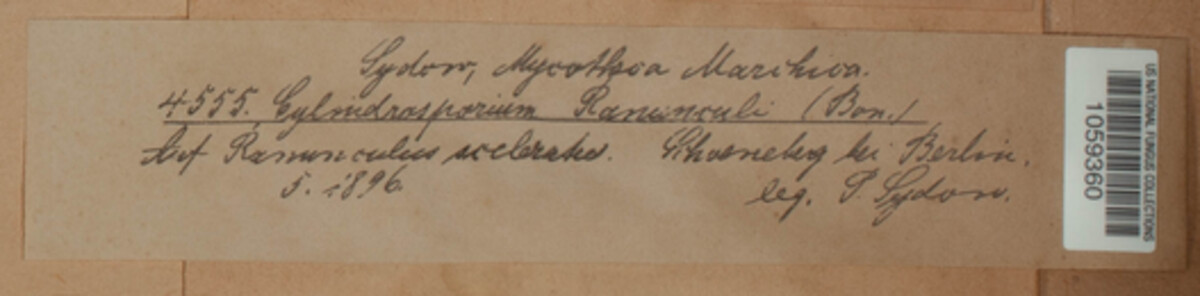 Sydow, Mycotheca Marchica.
4555. Cylindrosporium Ranunculi (Bon.)
Auf Ranunculus sceleratus. Schoeneberg bei Berlin.
5. 1896.
leg. P. Sydow.
US NATIONAL FUNGUS COLLECTIONS
1059360